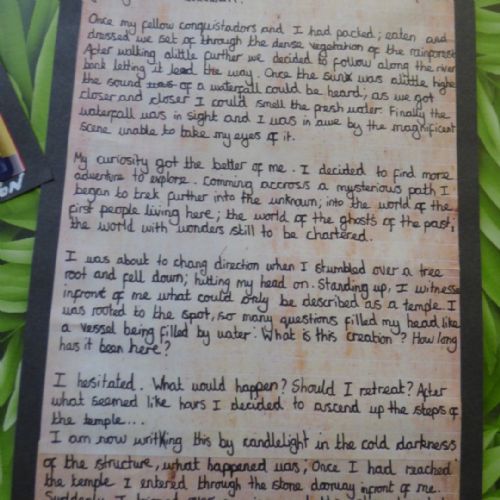 Once my fellow conquistadors and I had packed; eaten and
dressed we set of through the dense vegetation of the rainforest
After walking alittle further we decided to follow along the river
bank letting it lead the way. Once the sun was alittle highe
the sound of a waterfall could be heard; as we got
closer and closer I could smell the fresh water. Finally the
waterfall was in sight and I was in awe by the magnificent
scene unable to take my eyes of it.
My curiosity got the better of me. I decided to find more
adventure to explore. Comming accross a mysterious path I
began to trek further into the unknown; into the world of the
first people living here; the world of the ghosts of the past,
the world with wonders still to be chartered.
I was about to chang direction when I stumbled over a tree
root and fell down; hitting my head on. Standing up, I witnesse
infront of me what could only be described as a temple. I
was rooted to the spot, so many questions filled my head like
a vessel being filled by water. What is this creation? How long
has it been here?
I hesitated. What would happen? Should I retreat? After
what seemed like hours I decided to ascend up the steps of
the temple....
I am now writking this by candlelight in the cold darkness
of the structure, what happened was; Once I had reached
the temple I entered through the stone doorway infront of me..
Suddenly I
ON